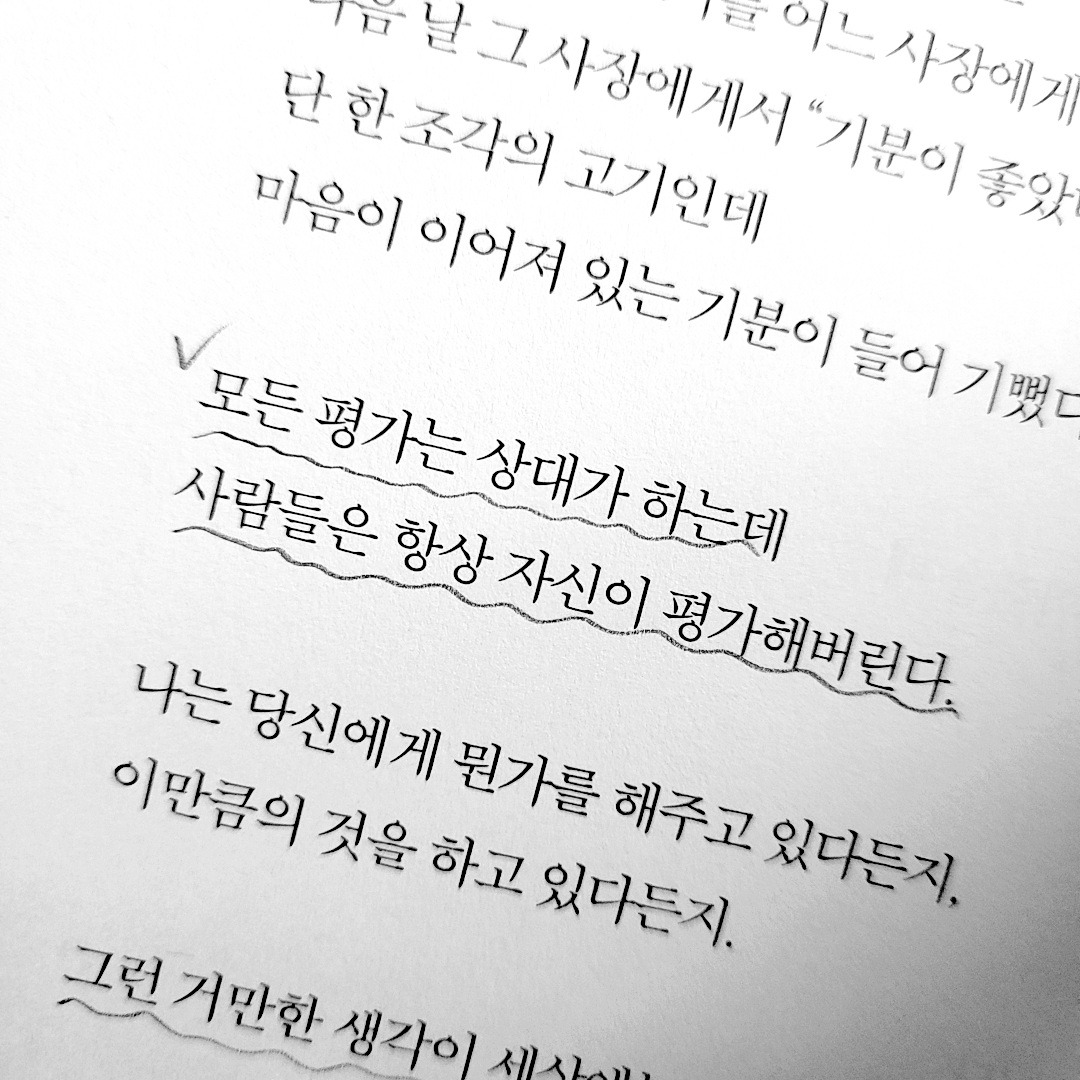 어느 사장에게
날 그 사장에게서 “기분이 좋았
단 한 조각의 고기인데
마음이 이어져 있는 기분이 들어 기뻤다
모든 평가는 상대가 하는데
사람들은 항상 자신이 평가해버린다.
나는 당신에게 뭔가를 해주고 있다든지,
이만큼의 것을 하고 있다든지.
그런 거만한 생각이